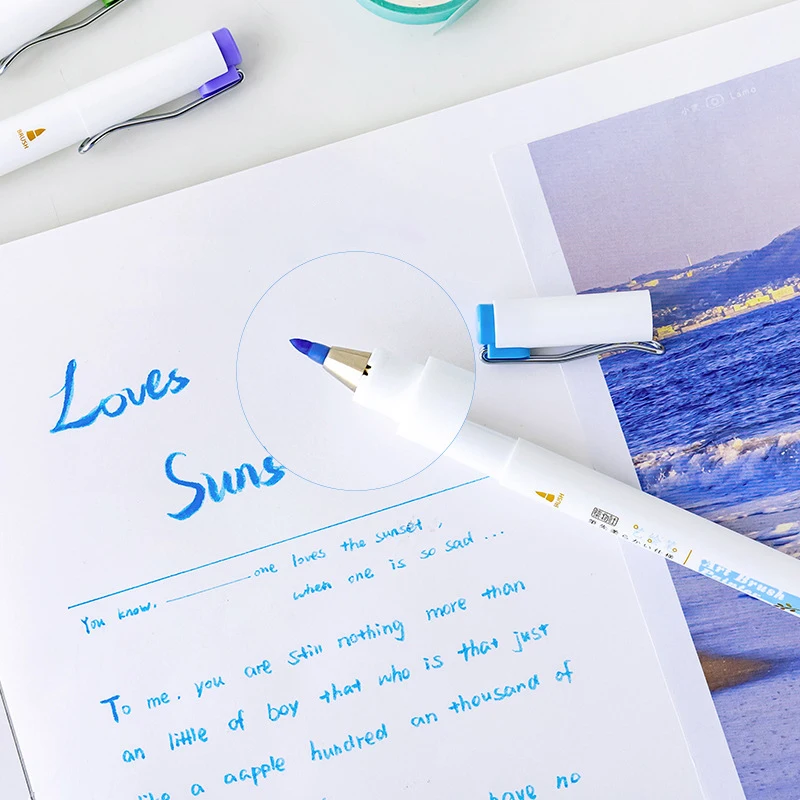 BRUSH
Lamo
Loves
Suns
one loves the sunset,
You know, when one is so sad ...
To me, you are still nothing more than
an little of boy that who is that just
like a aapple hundred an thousand of
have no
BRUSH
Art Brush